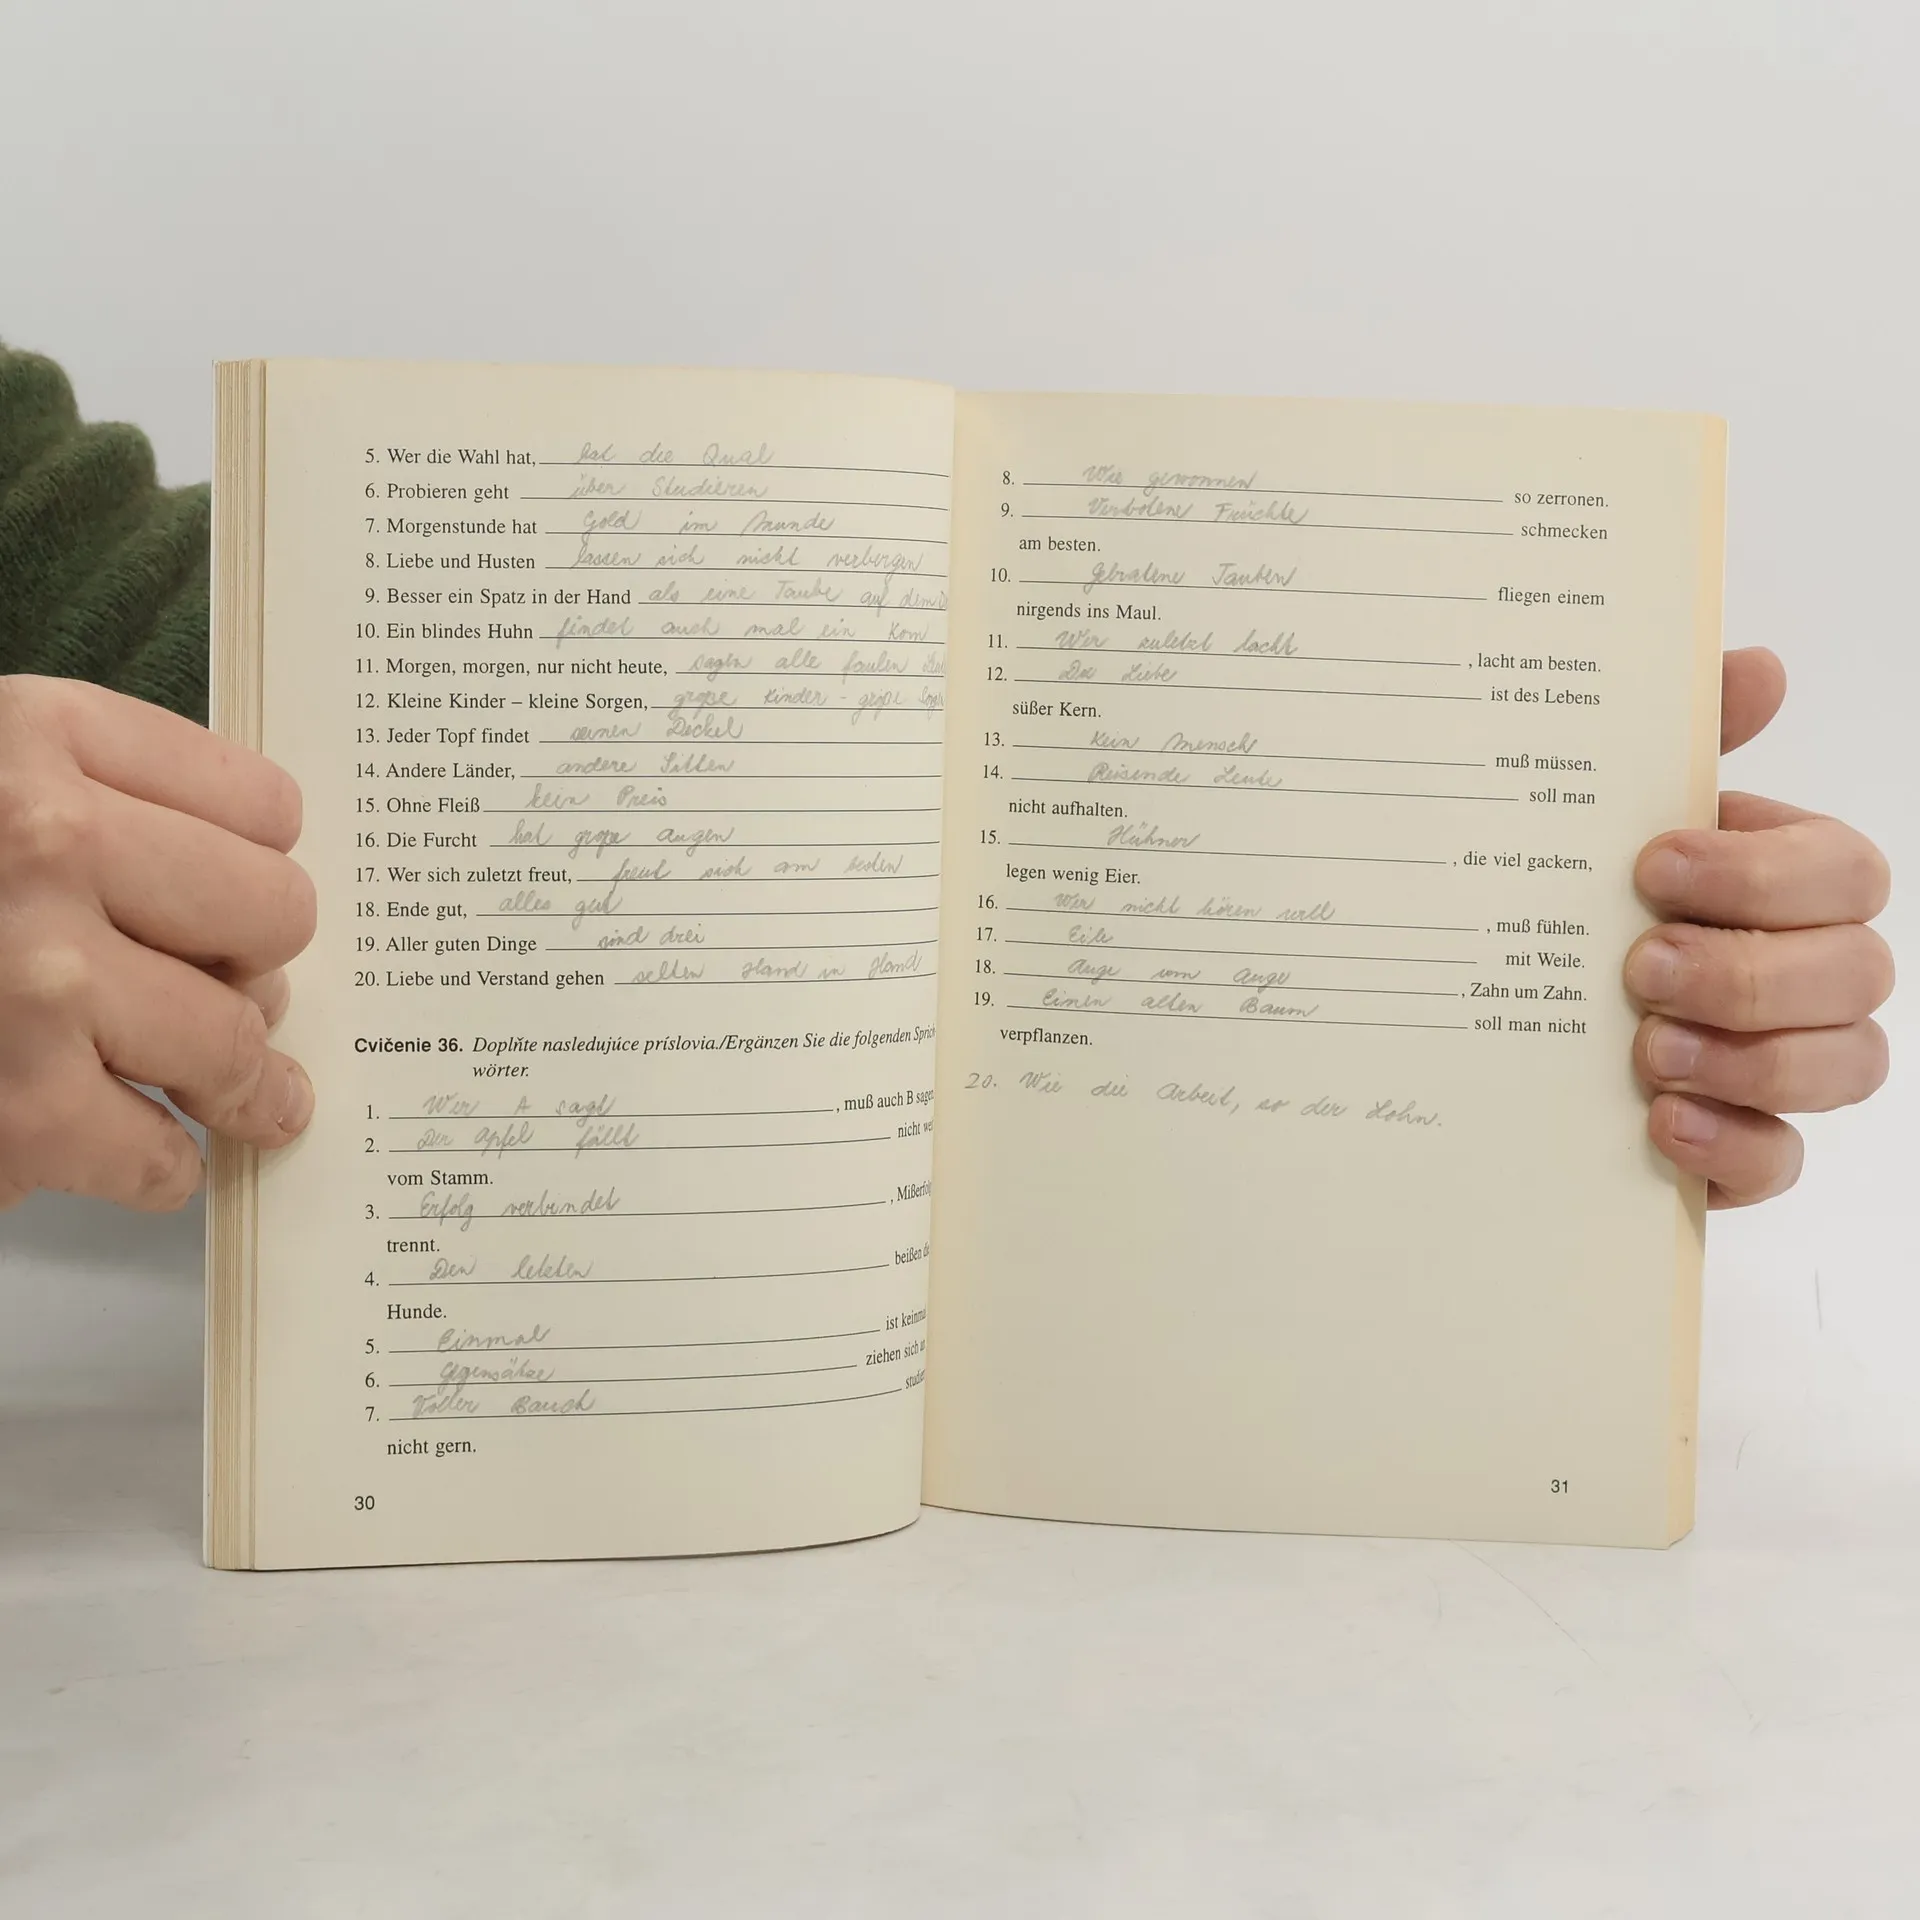 5. Wer die Wahl hat, hat die Qual
6. Probieren geht über Studieren
7. Morgenstunde hat Gold im Munde
8. Liebe und Husten lassen sich nicht verbergen
9. Besser ein Spatz in der Hand als eine Taube auf dem
10. Ein blindes Huhn findet auch mal ein Korn
11. Morgen, morgen, nur nicht heute, sagen alle faulen
12. Kleine Kinder – kleine Sorgen, große Kinder - große Sorgen
13. Jeder Topf findet seinen Deckel
14. Andere Länder, andere Sitten
15. Ohne Fleiß kein Preis
16. Die Furcht hat große Augen
17. Wer sich zuletzt freut, freut sich am besten
18. Ende gut, alles gut
19. Aller guten Dinge sind drei
20. Liebe und Verstand gehen selten Hand in Hand
Cvičenie 36. Doplňte nasledujúce príslovia./Ergänzen Sie die folgenden Sprich-
wörter.
1. Wer A sagt, muß auch B sagen
2. Der Apfel fällt nicht wei
vom Stamm.
3. Erfolg verbindet, Mißerfolg
trennt.
4. Den letzten beißen die
Hunde.
5. Einmal ist keinma
6. Gegensätze ziehen sich an
7. Voller Bauch studier
nicht gern.
30
8. Wie gewonnen so zerronen.
9. Verbotene Früchte schmecken
am besten.
10. Gebratene Tauben fliegen einem
nirgends ins Maul.
11. Wer zuletzt lacht, lacht am besten.
12. Die Liebe ist des Lebens
süßer Kern.
13. Kein Mensch muß müssen.
14. Reisende Leute soll man
nicht aufhalten.
15. Hühner, die viel gackern,
legen wenig Eier.
16. Wer nicht hören will, muß fühlen.
17. Eile mit Weile.
18. Auge um Auge, Zahn um Zahn.
19. Einen alten Baum soll man nicht
verpflanzen.
20. Wie die Arbeit, so der Lohn.
31